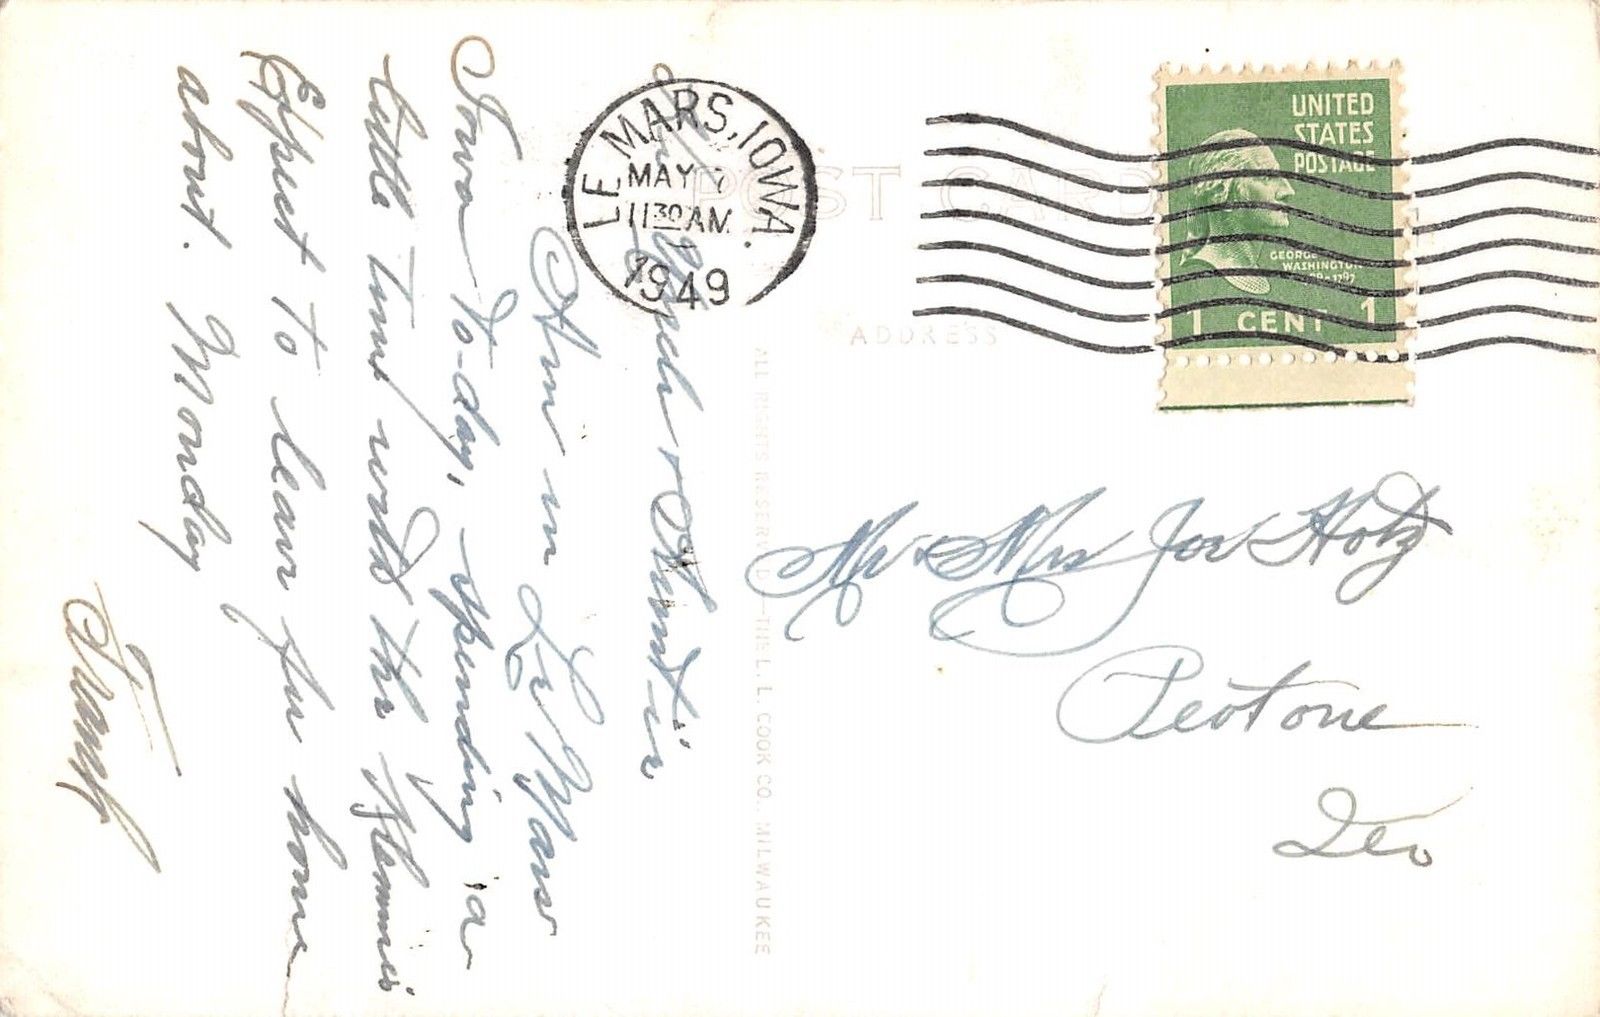 LE MARS, IOWA.
MAY 7
11 30 AM
1949
UNITED
STATES
POSTAGE
GEORGE
WASHINGTON
1 CENT 1
POST CARD
ADDRESS
ALL RIGHTS RESERVED—THE L. L. COOK CO., MILWAUKEE
Uncle & Aunt
Am in Le Mars
Iowa To-day, spending a
little time with the
Expect to leave for home
about Monday
Frank
Mr & Mrs Joe Hotz
Peotone
Ill